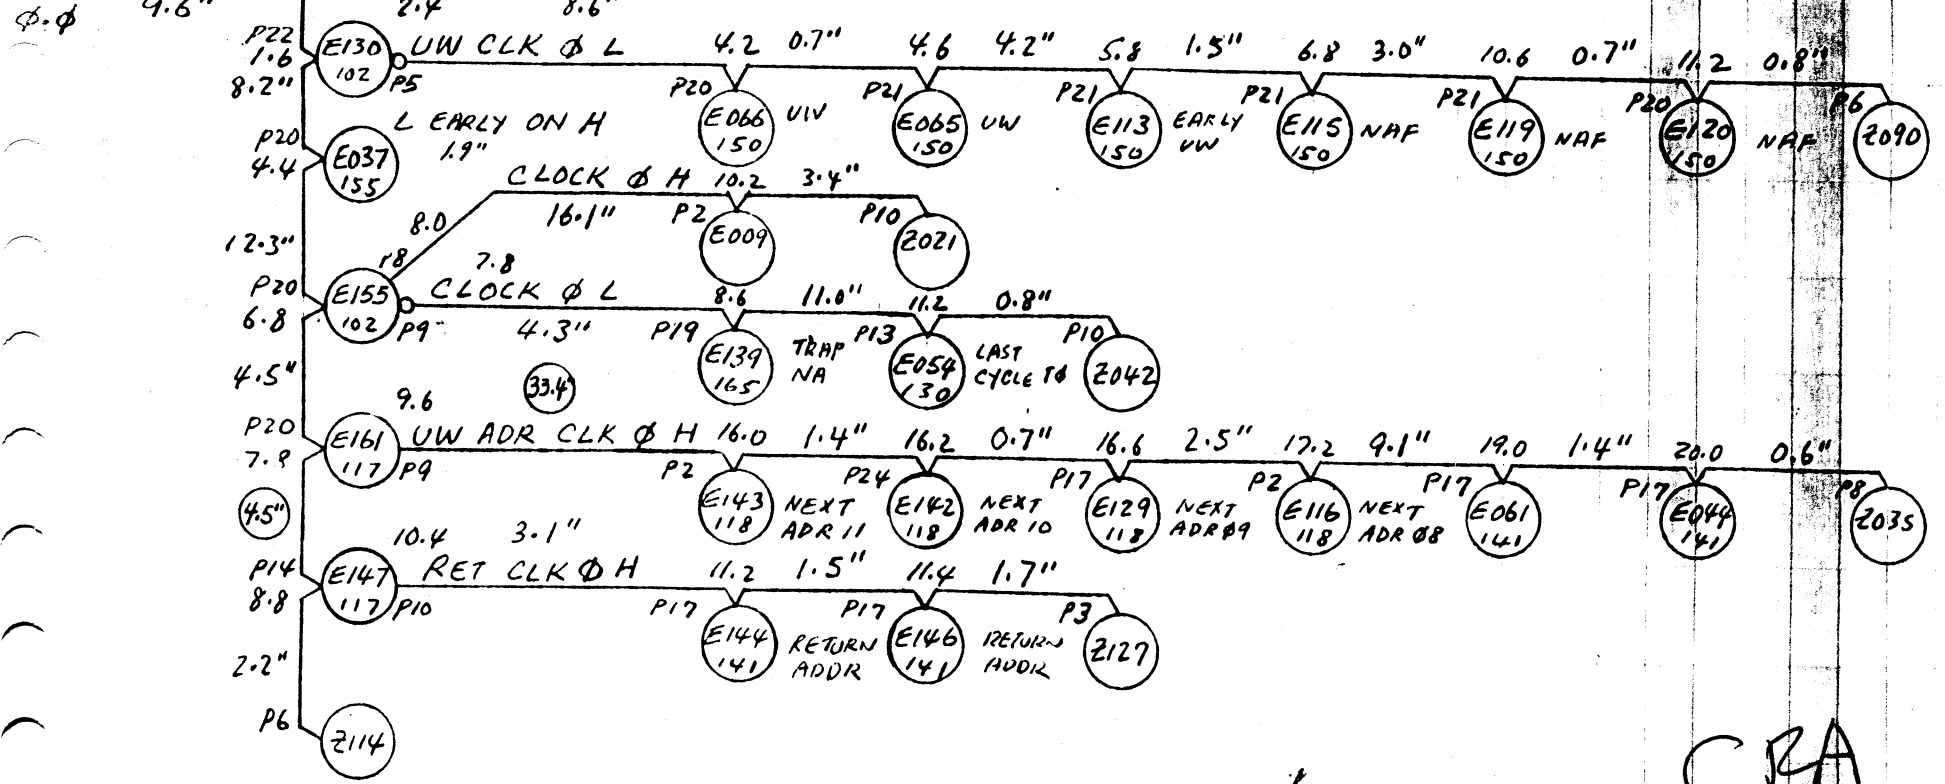 φ.φ 9.6" 2.4 8.6"
P22 1.6 E130 102 P5 UW CLK φ L 4.2 0.7" 4.6 4.2" 5.8 1.5" 6.8 3.0" 10.6 0.7" 11.2 0.8"
8.2" P20 E066 150 UW P21 E065 150 UW P21 E113 150 EARLY UW P21 E115 150 NAF P21 E119 150 NAF P20 E120 150 NAF P6 Z090
L EARLY ON H
P20 4.4 E037 155 1.9"
CLOCK φ H 10.2 3.4"
8.0 16.1" P2 E009 P10 Z021
12.3" 18 7.8
P20 6.8 E155 102 P9 CLOCK φ L 8.6 11.0" 11.2 0.8"
4.3" P19 E139 165 TRAP NA P13 E054 130 LAST CYCLE Tφ P10 Z042
4.5" 33.4"
9.6
P20 7.8 E161 117 P9 UW ADR CLK φ H 16.0 1.4" 16.2 0.7" 16.6 2.5" 17.2 9.1" 19.0 1.4" 20.0 0.6"
P2 E143 118 NEXT ADR 11 P24 E142 118 NEXT ADR 10 P17 E129 118 NEXT ADR φ9 P2 E116 118 NEXT ADR φ8 P17 E061 141 P17 E044 141 P8 Z035
4.5"
10.4 3.1"
P14 8.8 E147 117 P10 RET CLK φ H 11.2 1.5" 11.4 1.7"
P17 E144 141 RETURN ADDR P17 E146 141 RETURN ADDR P3 Z127
2.2"
P6 Z114
CRA